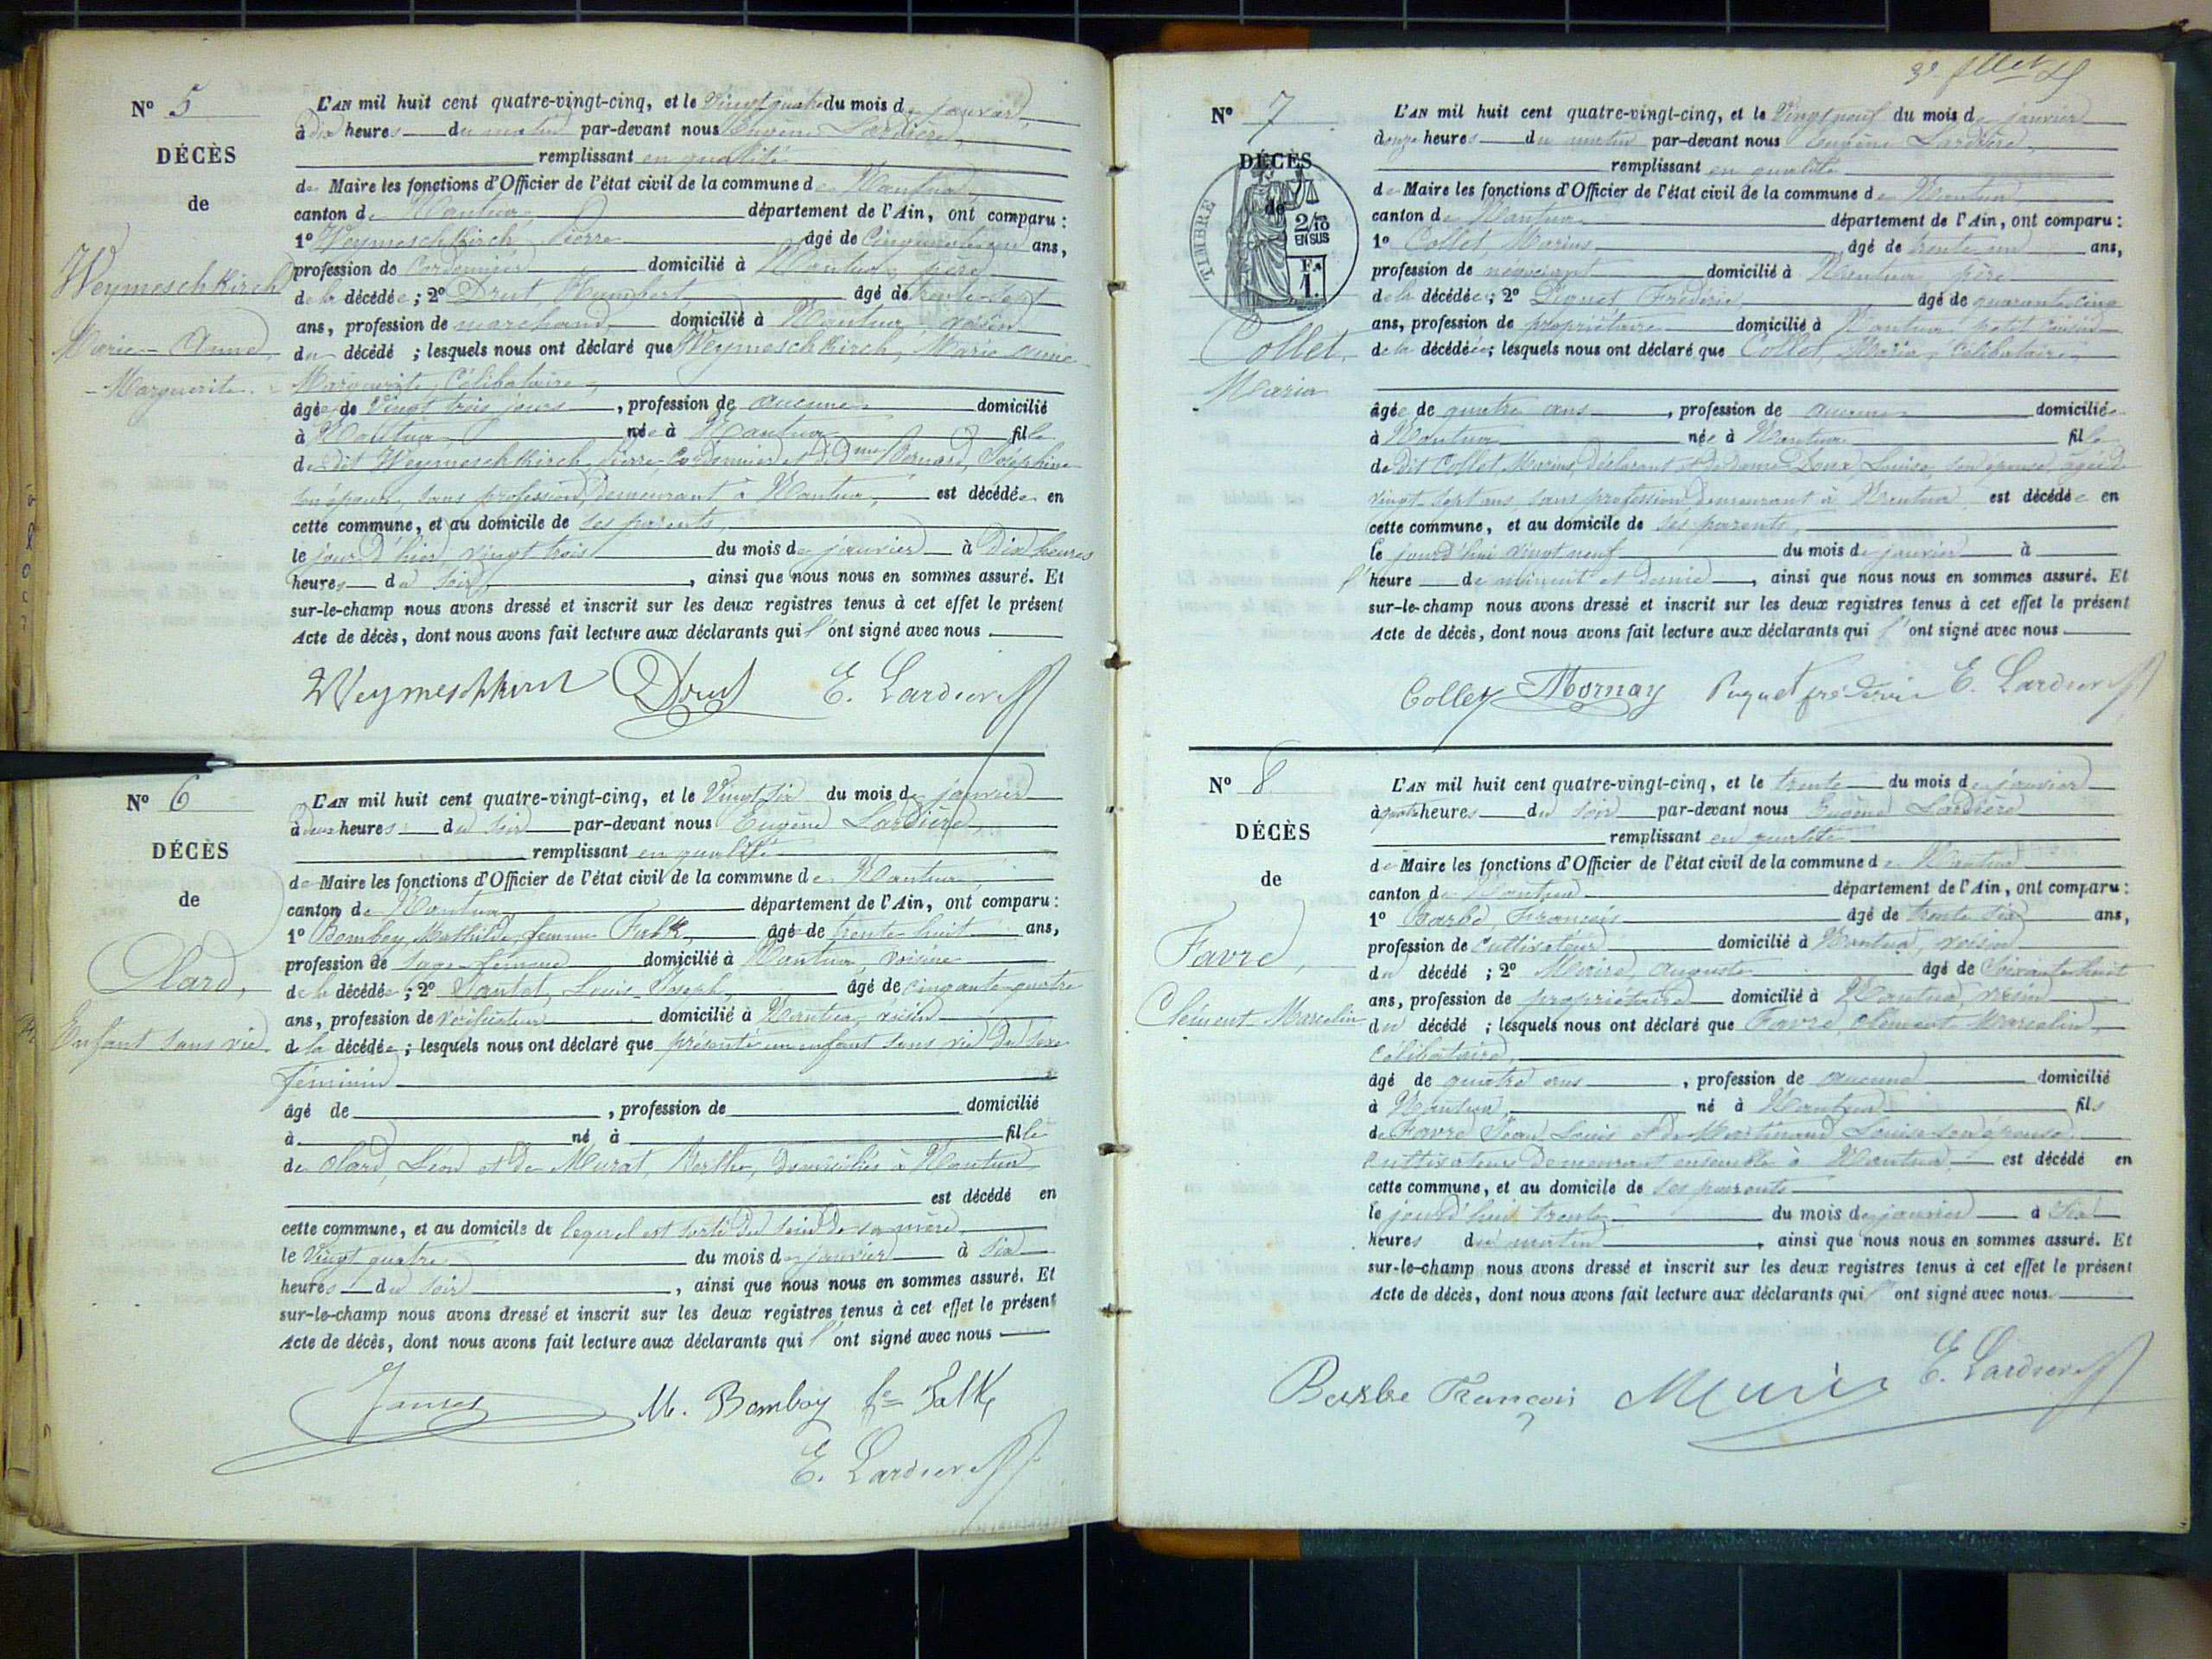 N° 5
DÉCÈS
de
Weymeschkirch
Marie-Anne
-Marguerite.
L'AN mil huit cent quatre-vingt-cinq, et le Vingt quatre du mois de janvier
à dix heures du matin par-devant nous Eugène Lardière,
remplissant en qualité
de Maire les fonctions d'Officier de l'état civil de la commune de Nantua,
canton de Nantua, département de l'Ain, ont comparu :
1° Weymeschkirch Pierre âgé de Cinquante un ans,
profession de Cordonnier domicilié à Nantua, père
de la décédée ; 2° Drut, Humbert, âgé de trente-sept
ans, profession de marchand, domicilié à Nantua, voisin
du décédé ; lesquels nous ont déclaré que Weymeschkirch, Marie Anne
Marguerite, Célibataire,
âgée de Vingt trois jours, profession de aucune domicilié
à Nantua, née à Nantua fille
de dit Weymeschkirch, Pierre Cordonnier et de dme Bernard, Joséphine
son épouse, sans profession, demeurant à Nantua, est décédée en
cette commune, et au domicile de ses parents,
le jour d'hier vingt trois du mois de janvier à Dix heures
heures du soir, ainsi que nous nous en sommes assuré. Et
sur-le-champ nous avons dressé et inscrit sur les deux registres tenus à cet effet le présent
Acte de décès, dont nous avons fait lecture aux déclarants qui l'ont signé avec nous.
Weymeschkirch Drut E. Lardière
N° 6
DÉCÈS
de
Olard,
Enfant sans vie.
L'AN mil huit cent quatre-vingt-cinq, et le Vingt six du mois de janvier
à deux heures du soir par-devant nous Eugène Lardière,
remplissant en qualité
de Maire les fonctions d'Officier de l'état civil de la commune de Nantua,
canton de Nantua département de l'Ain, ont comparu :
1° Bomboy Mathilde, femme Falk, âgé de trente huit ans,
profession de Sage-femme domicilié à Nantua, voisine
de la décédée ; 2° Louis-Joseph, âgé de cinquante-quatre
ans, profession de vérificateur domicilié à Nantua, voisin
de la décédée ; lesquels nous ont déclaré que présenté un enfant sans vie du sexe
féminin
âgé de , profession de domicilié
à né à fille
de Olard, Léon et de Murat, Berthe, domiciliés à Nantua
est décédé en
cette commune, et au domicile de lequel est sorti du sein de sa mère
le Vingt quatre du mois de janvier à six
heures du soir, ainsi que nous nous en sommes assuré. Et
sur-le-champ nous avons dressé et inscrit sur les deux registres tenus à cet effet le présent
Acte de décès, dont nous avons fait lecture aux déclarants qui l'ont signé avec nous
M. Bomboy fe Falk
E. Lardière
N° 7
DÉCÈS
de
TIMBRE
2/10
EN SUS
Fr.
1.
Collet,
Maria
L'AN mil huit cent quatre-vingt-cinq, et le Vingt neuf du mois de janvier
à onze heures du matin par-devant nous Eugène Lardière,
remplissant en qualité
de Maire les fonctions d'Officier de l'état civil de la commune de Nantua
canton de Nantua département de l'Ain, ont comparu :
1° Collet, Marius âgé de trente un ans,
profession de négociant domicilié à Nantua père
de la décédée ; 2° Frédéric âgé de quarante cinq
ans, profession de propriétaire domicilié à Nantua petit cousin
de la décédée ; lesquels nous ont déclaré que Collet, Maria, célibataire,
âgée de quatre ans, profession de aucune domiciliée
à Nantua née à Nantua fille
de dit Collet Marius, déclarant et de dame Louise son épouse, âgée de
vingt-sept ans, sans profession, demeurant à Nantua est décédée en
cette commune, et au domicile de ses parents,
le jourd'hui vingt neuf du mois de janvier à
l'heure de minuit et demie, ainsi que nous nous en sommes assuré. Et
sur-le-champ nous avons dressé et inscrit sur les deux registres tenus à cet effet le présent
Acte de décès, dont nous avons fait lecture aux déclarants qui l'ont signé avec nous
Collet Mornay frédéric E. Lardière
N° 8
DÉCÈS
de
Favre,
Clément Marcelin
L'AN mil huit cent quatre-vingt-cinq, et le trente du mois de janvier
à quatre heures du soir par-devant nous Eugène Lardière
remplissant en qualité
de Maire les fonctions d'Officier de l'état civil de la commune de Nantua
canton de Nantua département de l'Ain, ont comparu :
1° Barbe François âgé de trente six ans,
profession de cultivateur domicilié à Nantua, voisin
du décédé ; 2° Auguste âgé de soixante huit
ans, profession de propriétaire domicilié à Nantua, voisin
du décédé ; lesquels nous ont déclaré que Favre, Clément Marcelin,
Célibataire,
âgé de quatre ans, profession de aucune domicilié
à Nantua, né à Nantua fils
de Favre Jean Louis et de Martinand Louise son épouse,
cultivateurs demeurant ensemble à Nantua est décédé en
cette commune, et au domicile de ses parents
le jourd'hui trente du mois de janvier à six
heures du matin, ainsi que nous nous en sommes assuré. Et
sur-le-champ nous avons dressé et inscrit sur les deux registres tenus à cet effet le présent
Acte de décès, dont nous avons fait lecture aux déclarants qui l'ont signé avec nous.
Barbe François E. Lardière